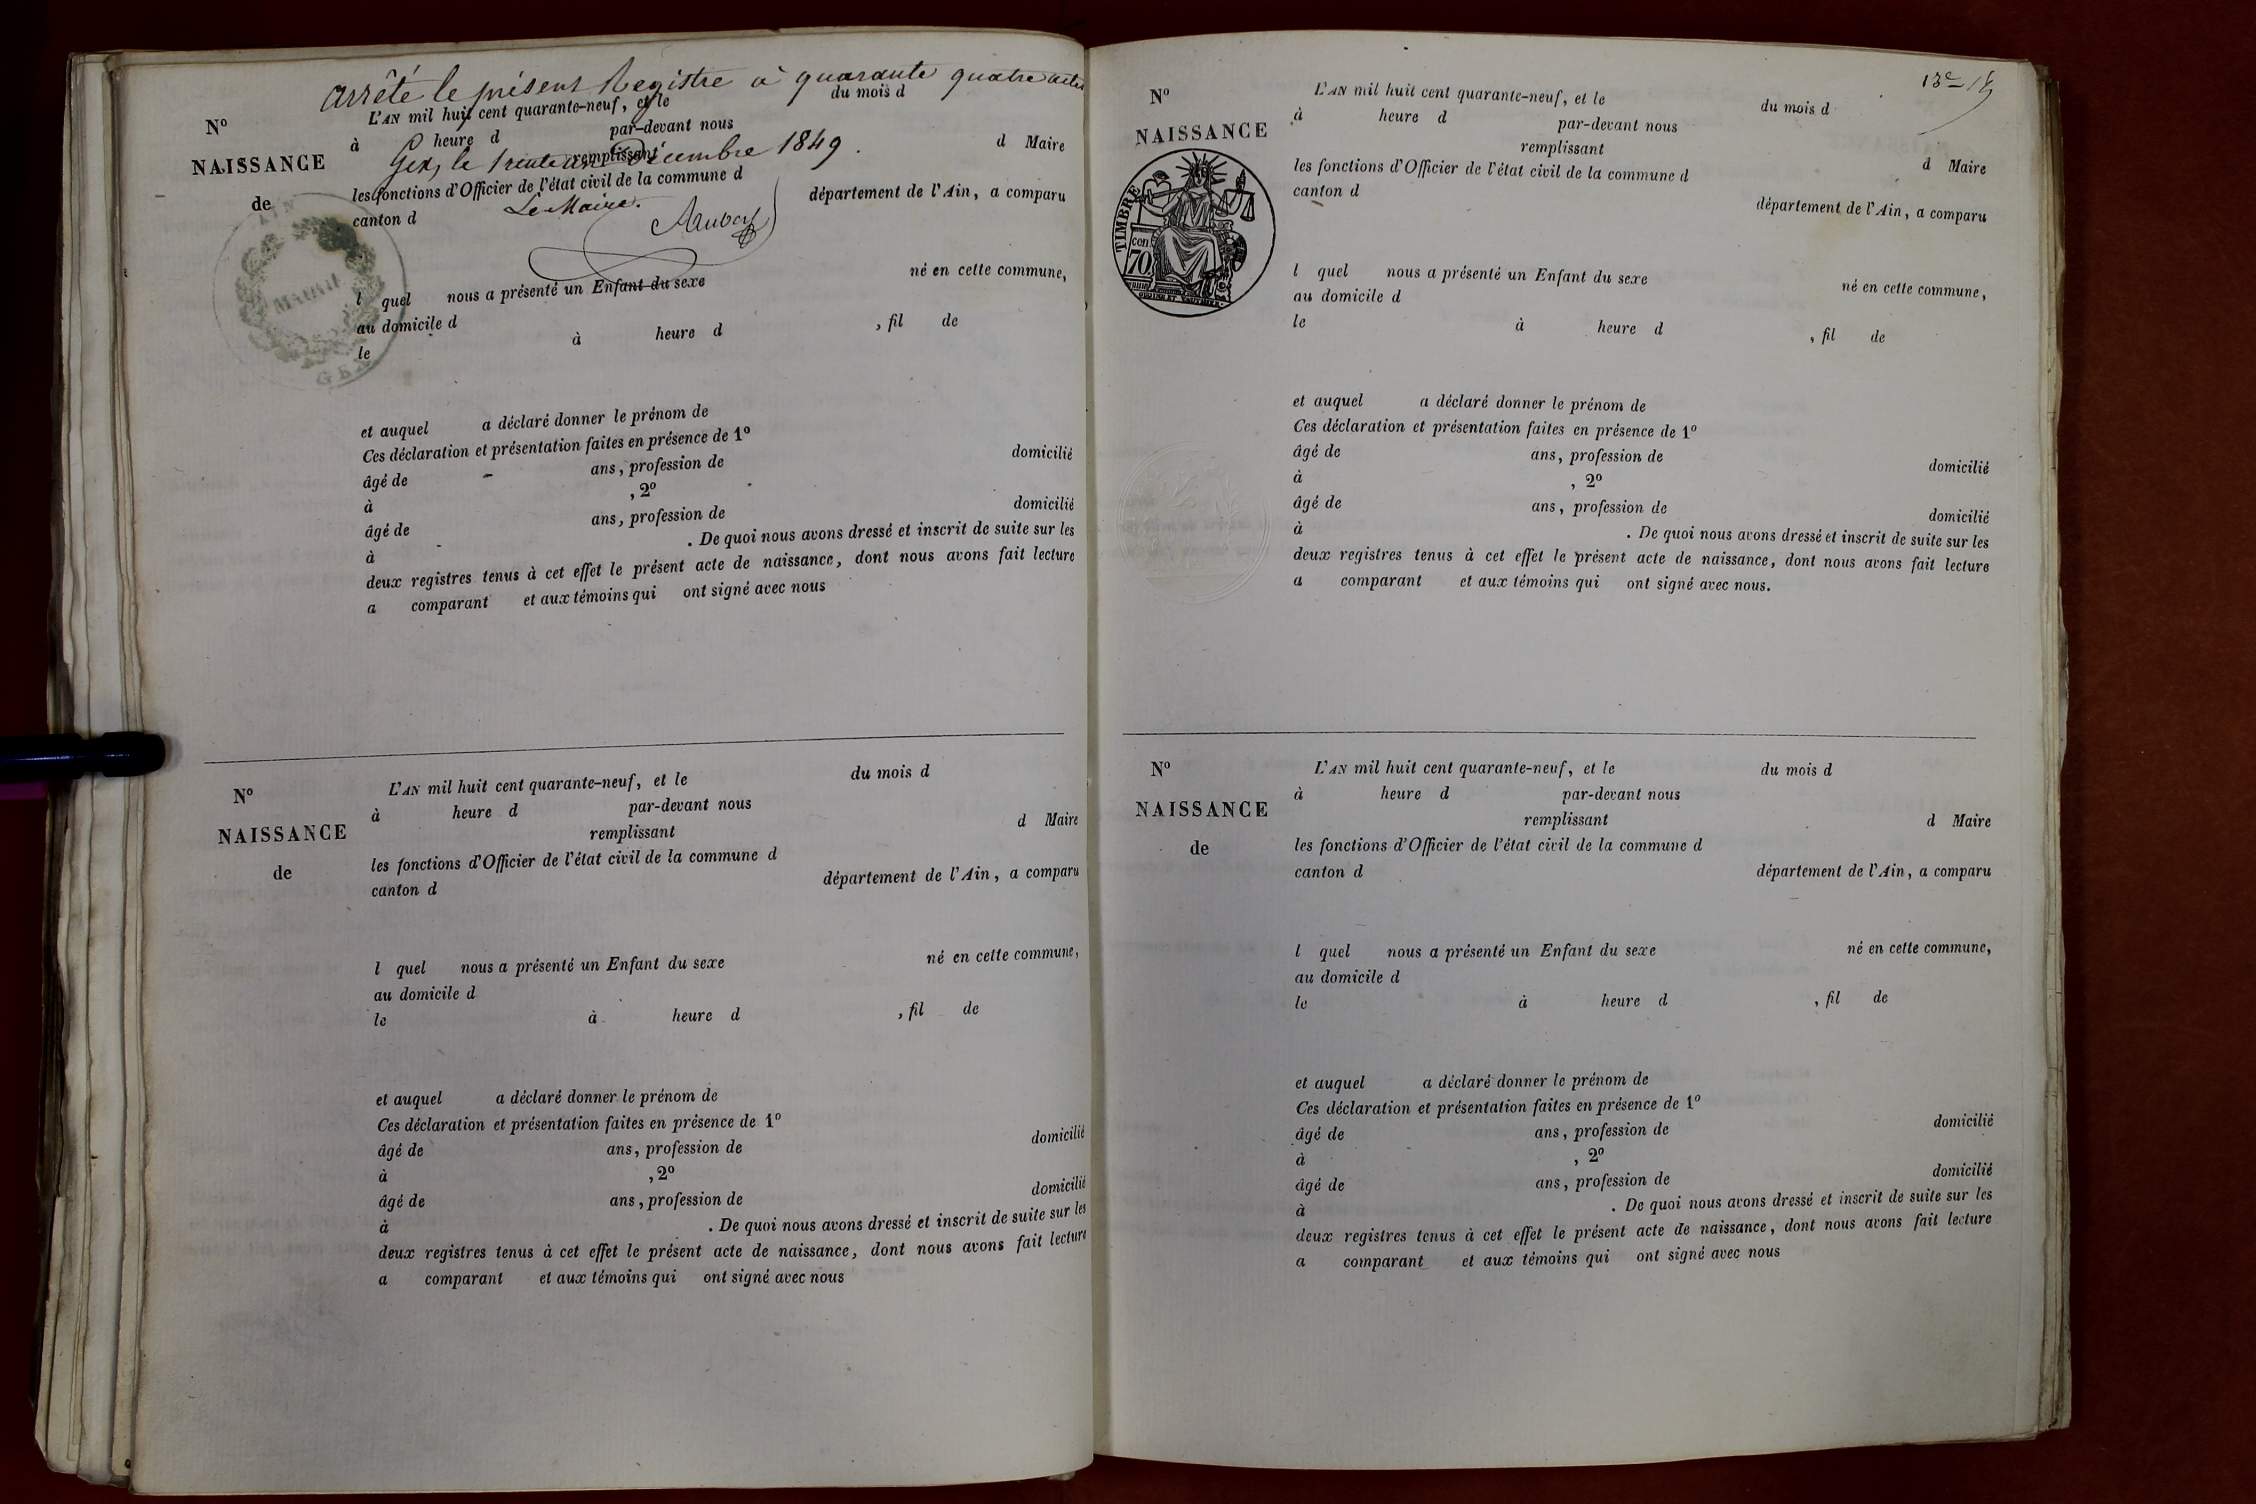 arrêté le présent Registre à quarante quatre actes
Nº
NAISSANCE
de
L'AN mil huit cent quarante-neuf, et le du mois d
à heure d par-devant nous
Gex, le trente un Décembre 1849.
remplissant d Maire
les fonctions d'Officier de l'état civil de la commune d
Le Maire.
canton d département de l'Ain, a comparu
AIN
MAIRIE
GEX
l quel nous a présenté un Enfant du sexe né en cette commune,
au domicile d
le à heure d , fil de
et auquel a déclaré donner le prénom de
Ces déclaration et présentation faites en présence de 1º
âgé de ans, profession de domicilié
à , 2º
âgé de ans, profession de domicilié
à . De quoi nous avons dressé et inscrit de suite sur les
deux registres tenus à cet effet le présent acte de naissance, dont nous avons fait lecture
a comparant et aux témoins qui ont signé avec nous
Nº
NAISSANCE
de
L'AN mil huit cent quarante-neuf, et le du mois d
à heure d par-devant nous
remplissant d Maire
les fonctions d'Officier de l'état civil de la commune d
canton d département de l'Ain, a comparu
l quel nous a présenté un Enfant du sexe né en cette commune,
au domicile d
le à heure d , fil de
et auquel a déclaré donner le prénom de
Ces déclaration et présentation faites en présence de 1º
âgé de ans, profession de domicilié
à , 2º
âgé de ans, profession de domicilié
à . De quoi nous avons dressé et inscrit de suite sur les
deux registres tenus à cet effet le présent acte de naissance, dont nous avons fait lecture
a comparant et aux témoins qui ont signé avec nous
Nº
NAISSANCE
TIMBRE
cen
70
L'AN mil huit cent quarante-neuf, et le du mois d
à heure d par-devant nous
remplissant d Maire
les fonctions d'Officier de l'état civil de la commune d
canton d département de l'Ain, a comparu
l quel nous a présenté un Enfant du sexe né en cette commune,
au domicile d
le à heure d , fil de
et auquel a déclaré donner le prénom de
Ces déclaration et présentation faites en présence de 1º
âgé de ans, profession de domicilié
à , 2º
âgé de ans, profession de domicilié
à . De quoi nous avons dressé et inscrit de suite sur les
deux registres tenus à cet effet le présent acte de naissance, dont nous avons fait lecture
a comparant et aux témoins qui ont signé avec nous.
Nº
NAISSANCE
de
L'AN mil huit cent quarante-neuf, et le du mois d
à heure d par-devant nous
remplissant d Maire
les fonctions d'Officier de l'état civil de la commune d
canton d département de l'Ain, a comparu
l quel nous a présenté un Enfant du sexe né en cette commune,
au domicile d
le à heure d , fil de
et auquel a déclaré donner le prénom de
Ces déclaration et présentation faites en présence de 1º
âgé de ans, profession de domicilié
à , 2º
âgé de ans, profession de domicilié
à . De quoi nous avons dressé et inscrit de suite sur les
deux registres tenus à cet effet le présent acte de naissance, dont nous avons fait lecture
a comparant et aux témoins qui ont signé avec nous